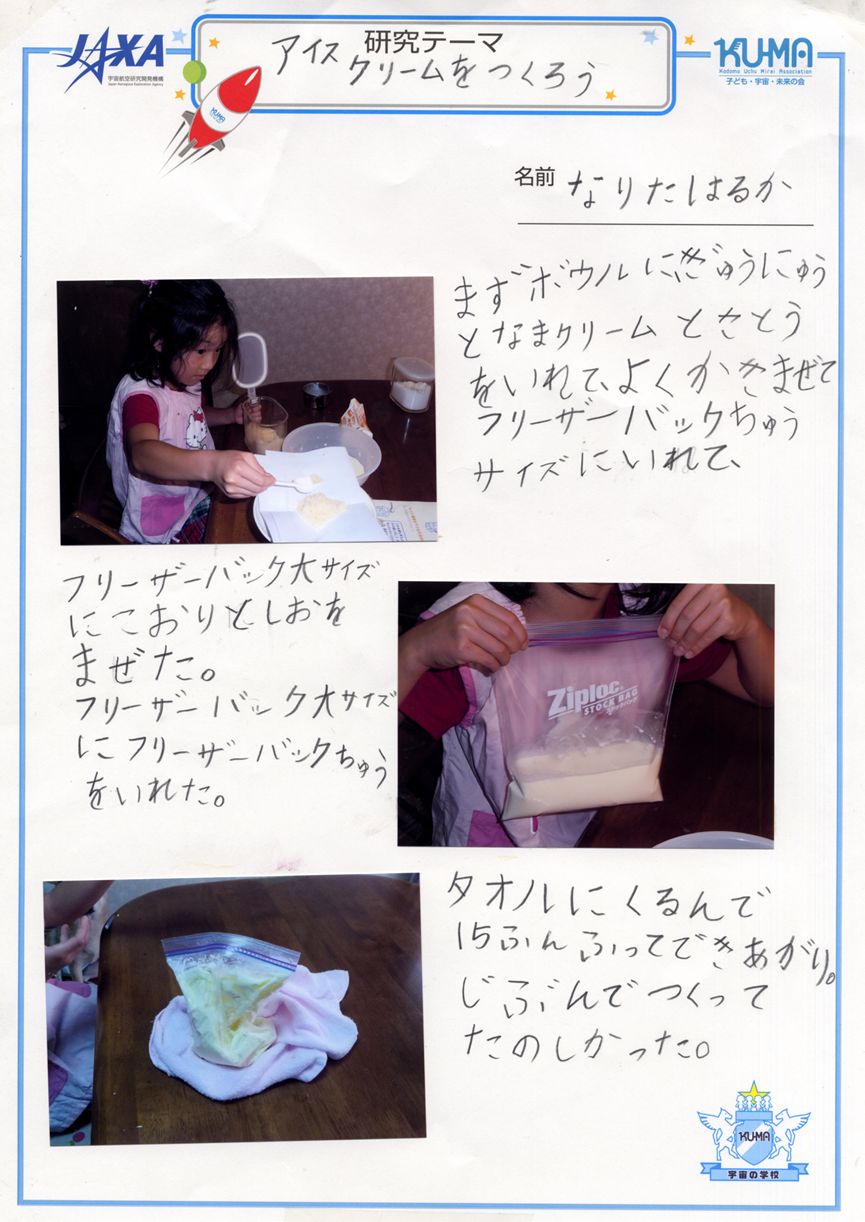 JAXA
宇宙航空研究開発機構
Japan Aerospace Exploration Agency
研究テーマ
アイス
クリームをつくろう
KU-MA
Kodomo Uchu Mirai Association
子ども・宇宙・未来の会
KU-MA
名前 なりたはるか
まずボウルにぎゅうにゅう
となまクリームとさとう
をいれて、よくかきまぜて
フリーザーバックちゅう
サイズにいれて、
フリーザーバック大サイズ
にこおりとしおを
まぜた。
フリーザーバック大サイズ
にフリーザーバックちゅう
をいれた。
Ziploc
STOCK BAG
ストックバッグ
タオルにくるんで
15ふんふってできあがり。
じぶんでつくって
たのしかった。
KU-MA
宇宙の学校